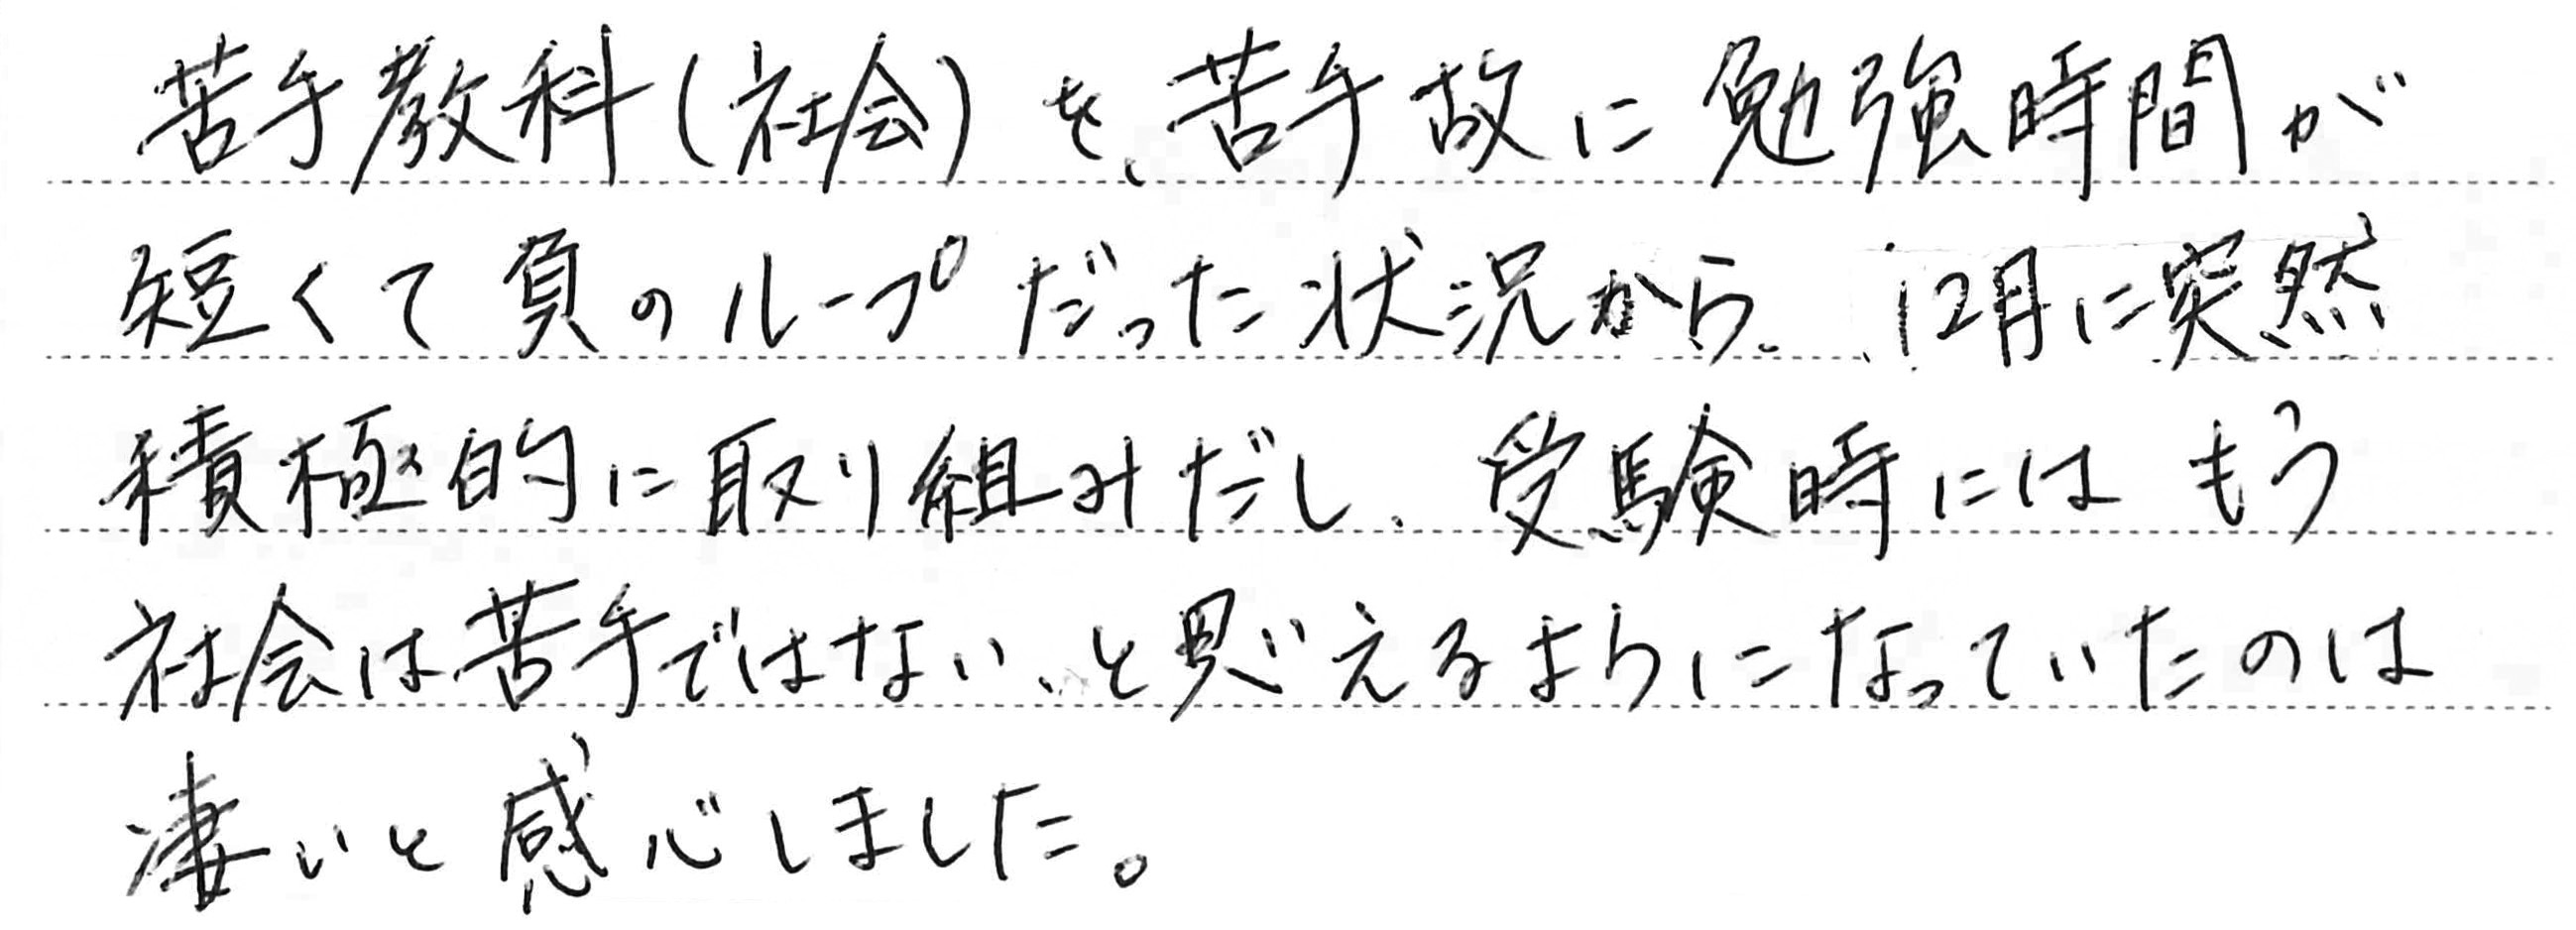 苦手教科(社会)を、苦手故に勉強時間が
短くて負のループだった状況から、12月に突然
積極的に取り組みだし、受験時にはもう
社会は苦手ではない、と思えるようになっていたのは
凄いと感心しました。